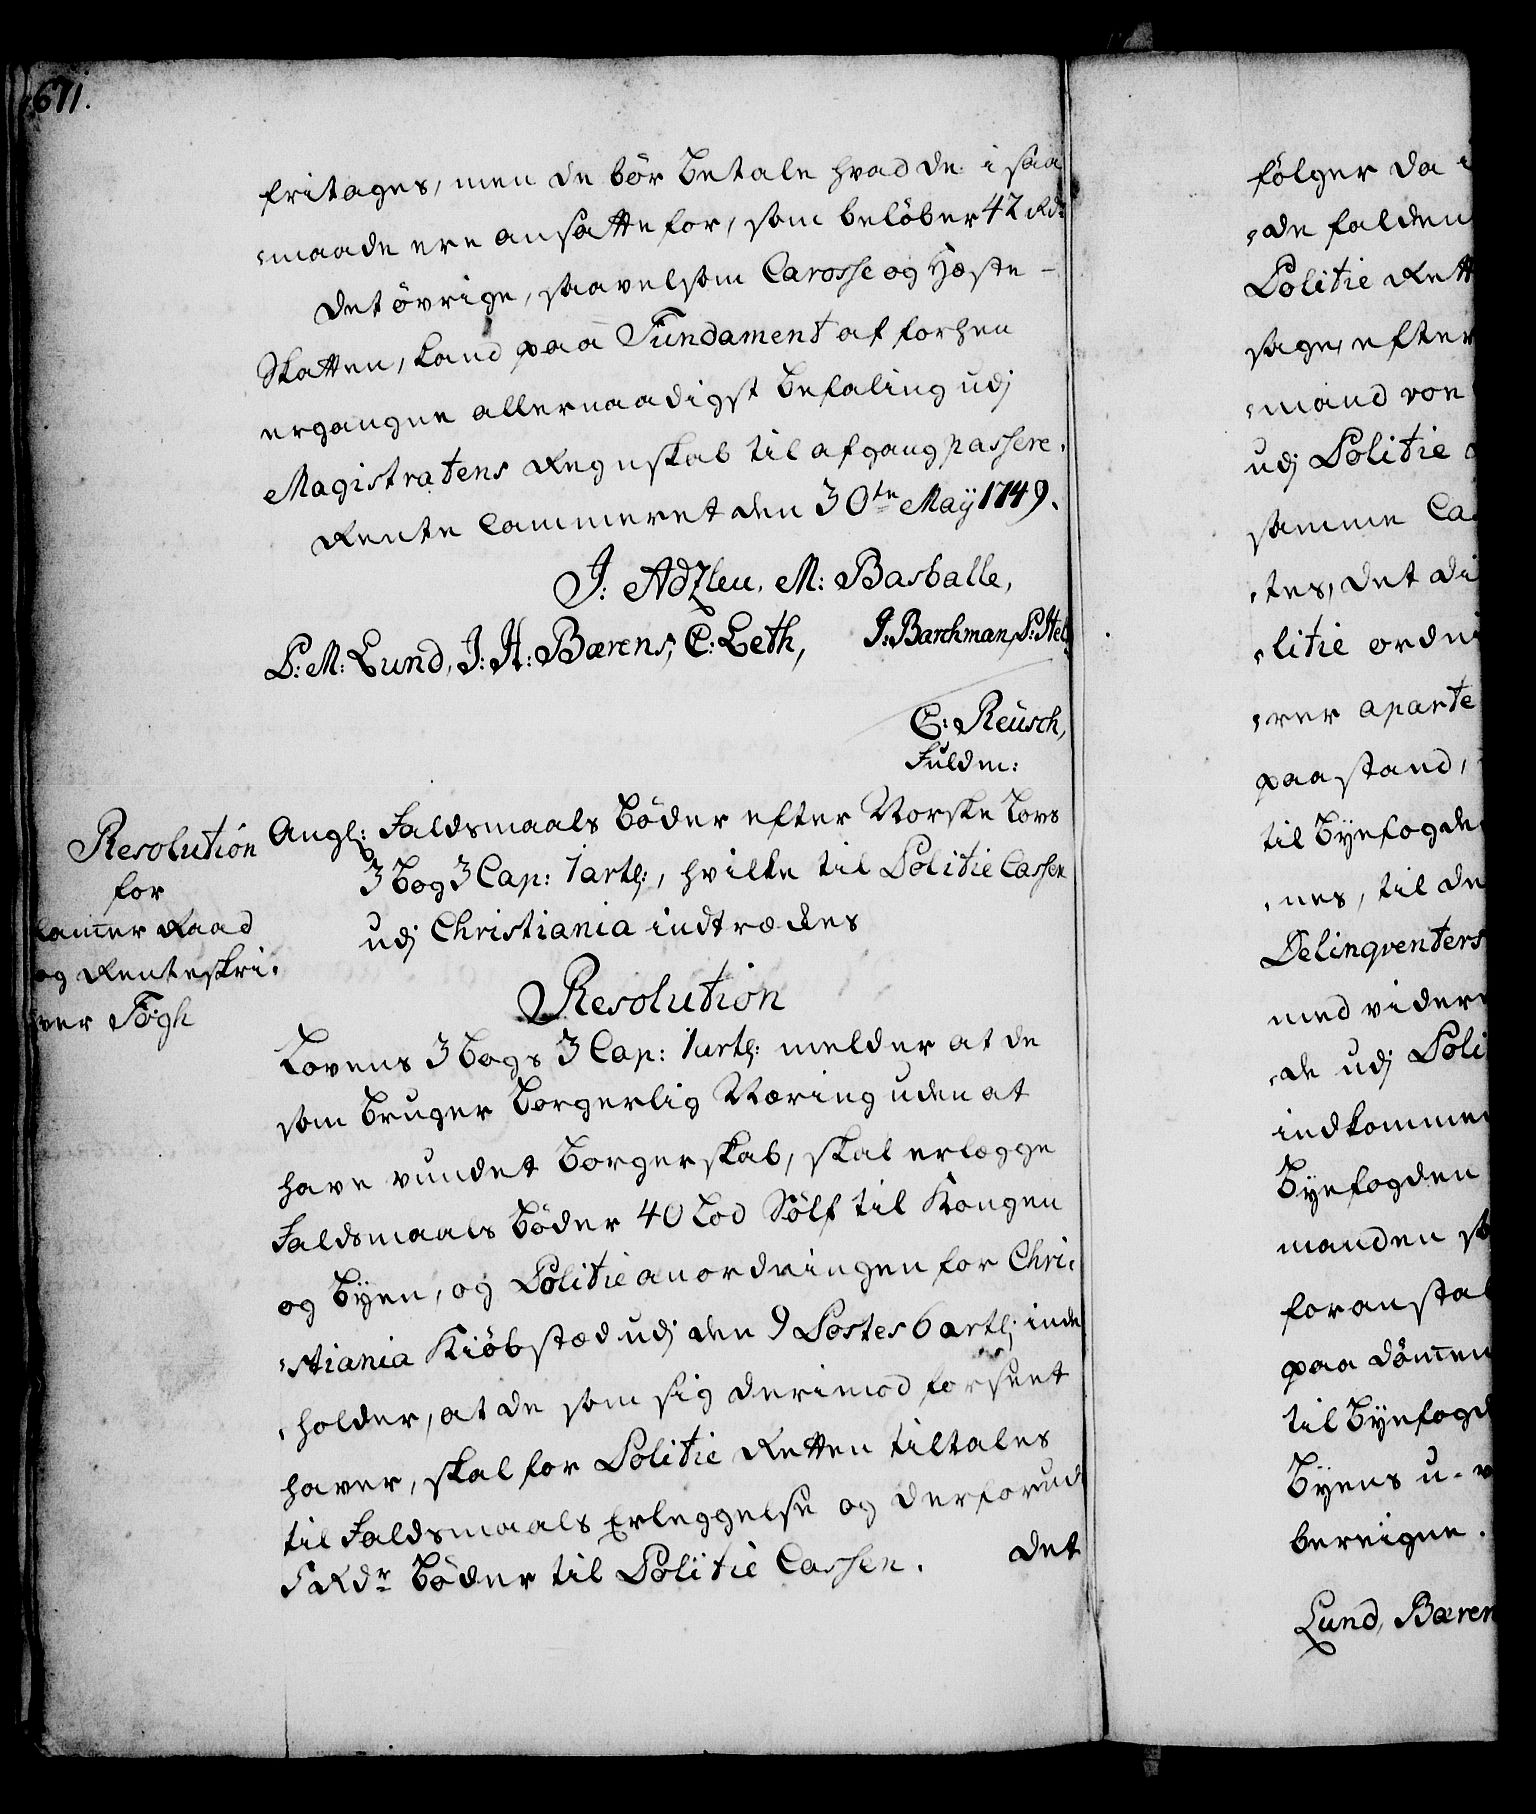 671.
fritages, men de bör betale hvad de i saa
maade ere ansatte for, som belöber 42 Rdr
Det övrige, saavelsom Carosse og Heste-
Skatten, kand paa Fundament af forhen
ergangne allernaadigst Befaling udj
Magistratens Regnskab til afgang passere.
Rente Cammeret den 30te Maÿ 1749.
J. Adzleu, M: Basballe,
P: M: Lund, J: H: Bærens, C: Leth, J: Barchman, P: Hel
C: Reusch,
Fuldm:
Resolution
for
Camer Raad
og Renteskri-
ver Fogh
Angl: Faldsmaals Böder efter Norske Lovs
3 Bog 3 Cap: 1 artl:, hvilke til Politie Cassen
udj Christiania indtrædes
Resolution
Lovens 3 Bogs 3 Cap: 1 artl: melder at de
som bruger Borgerlig Næring uden at
have vundet Borgerskab, skal erlægge
Faldsmaals Böder 40 Lod Sölf til Kongen
og Byen, og Politie anordningen for Chri-
stiania Kiöbstæd udj den 9 Postes 6 artl: inde
holder, at de som sig derimod forseet
haver, skal for Politie Retten tiltales
til Faldsmaals Erleggelse og derforud
5 Rdr Böder til Politie Cassen.
Det
fölger da
de falden
Politie Rett
sage, efter
mand von
udj Politie
samme Ca
tes, det di
litie ordni
rer aparte
paastand,
til Byefogde
nes, til de
Delinqventers
med videre
de udj Poli
indkommen
Byefogden
manden
foranstal
paa döm̅en
til Byefogd
Byens u-
beregne.
Lund, Bæren